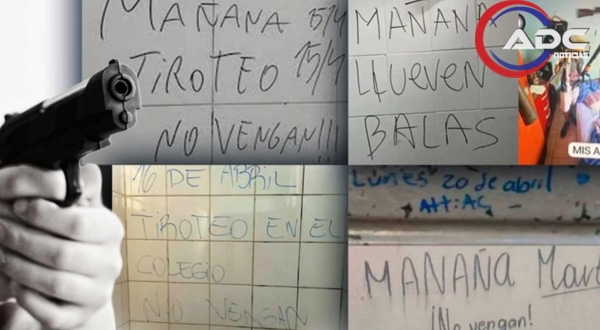 MAÑANA 15/4
TIROTEO 15/4
NO VENGAN!!!
MAÑANA
LLUEVEN
BALAS
ADC
NOTICIAS
MIS A
16 DE ABRIL
TIROTEO EN EL
COLEGIO
NO VENGAN
Lunes 20 de abril
Att: AC
MAÑANA Mart
¡No vengan!